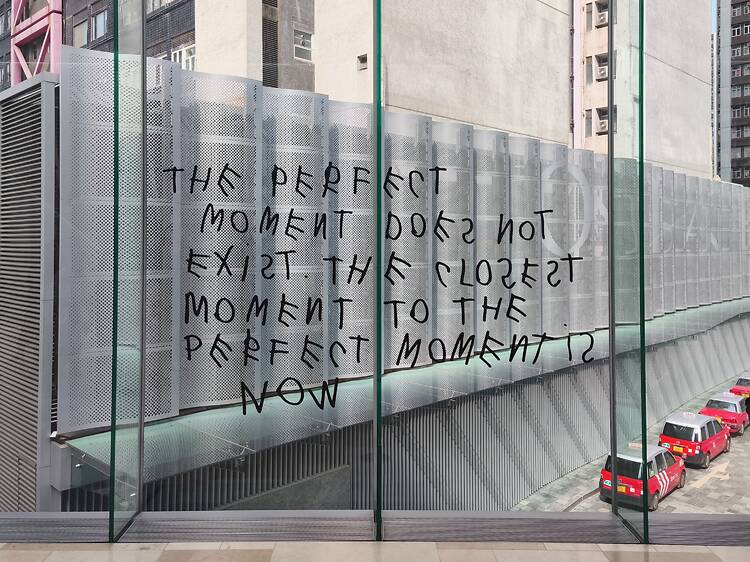 THE PERFECT
MOMENT DOES NOT
EXIST. THE CLOSEST
MOMENT TO THE
PERFECT MOMENT IS
NOW